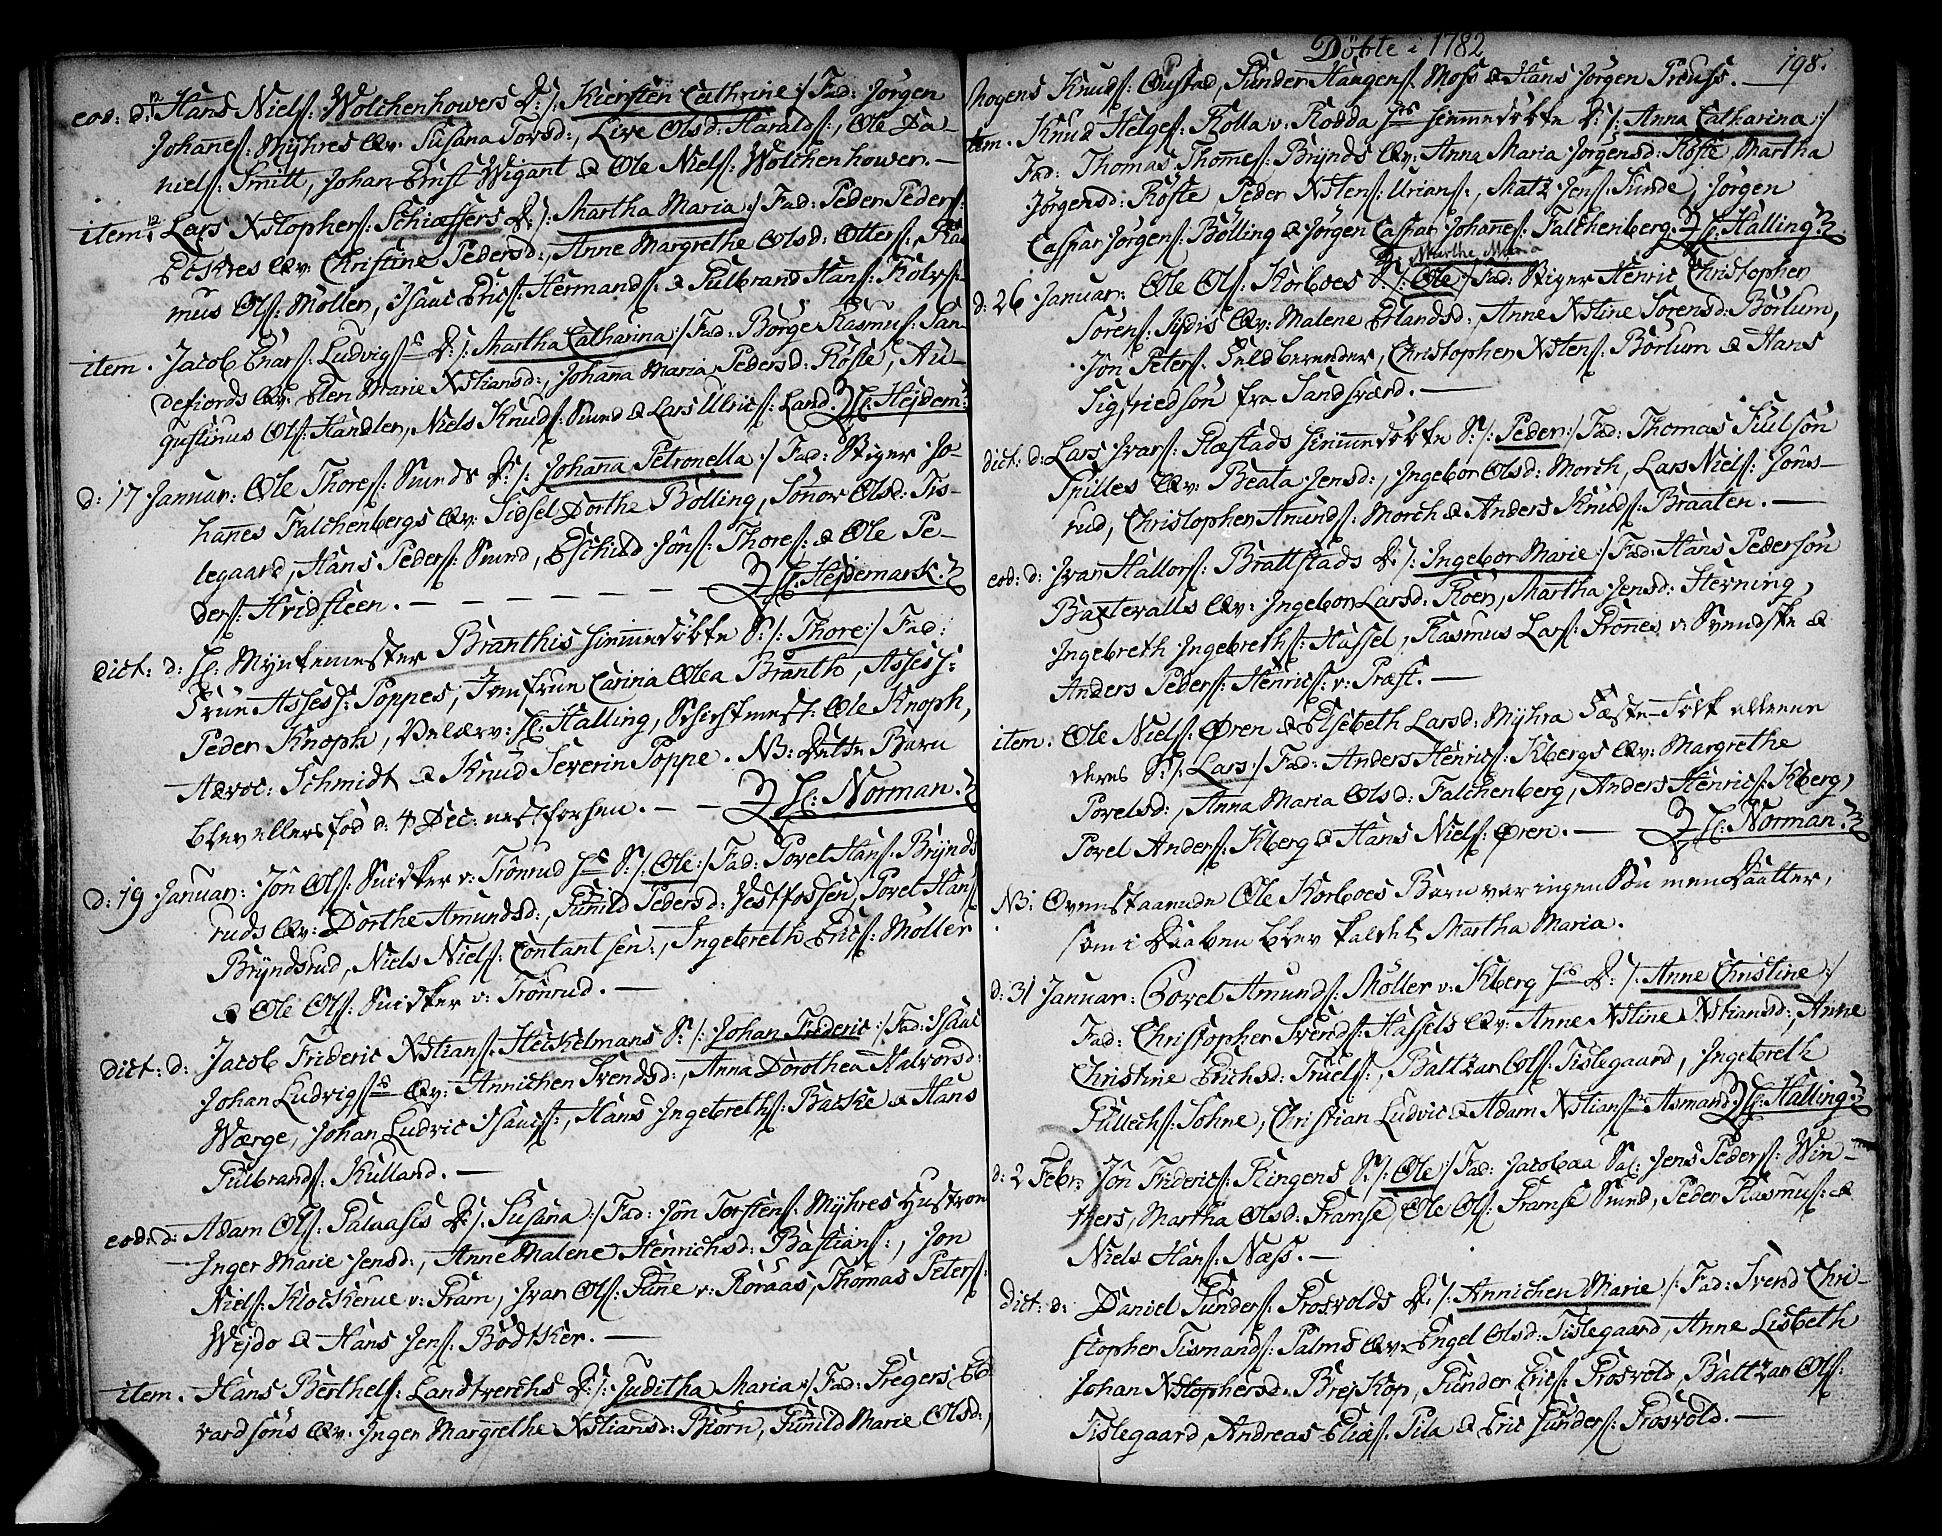 eod: d: Hans Niels: Wolchenhowers D: /: Kiersten Cathrine :/ Fad: Jørgen
Johanes: Myhres Qv: Susana Torsd:, Live Olsd: Haralds:, Ole Da-
niels: Smitt, Johan Ernst Wigant & Ole Niels: Wolchenhower. —
item: Lars Xstophers: Schiæffers D: /: Martha Maria :/ Fad: Peder Peders:
Eskres Qv: Christine Pedersd:, Anne Margrethe Olsd: Otters:, Ras
mus Ols: Møller, Isaac Erics: Hermands: & Gulbrand Hans: Kolrs:
item. Jacob Enars: Ludvigs: D: /: Martha Catharina :/ Fad: Børge Rasmus: San-
defiords Qv: Elen Marie Xstiansd:, Johana Maria Pedersd: Røste, Au-
gustinus Ols: Handler, Niels Knuds: Smed & Lars Ulrics: Land. H: Hejdem:
d: 17 Januar: Ole Thores: Smeds D: /: Johana Petronella :/ Fad: Stiger Jo-
hanes Falchenbergs Qv: Sidsel Dorthe Bølling, Sønov Olsd: Tis-
legaard, Hans Peders: Smed, Eschild Jøns: Thores: & Ole Pe-
ders: Hvidsteen. — — — — — — H: Hejdemark.
dict: d: H: Myntemester Branthis hiemmedøbte S: /: Thore :/ Fad:
Frue Assess: Poppes, Jomfrue Carina Olea Branth, Assess:
Peder Knoph, Velærv: H: Halling, Schichtmest: Ole Knoph,
Advoc: Schmidt & Knud Severin Poppe. NB: Dette Barn
blev ellers fød d: 4 Dec: nestforhen. — — H: Norman.
d: 19 Januar: Jøn Ols: Snidker v: Trønrud S: /: Ole :/ Fad: Povel Hans: Brynds
ruds Qv: Dorthe Amundsd:, Gunild Pedersd: Vestfossen, Povel Hans:
Bryndsrud, Niels Niels: Contant sen:, Ingebreth Erics: Møller
& Ole Ols: Snidker v: Trønrud. —
dict: d: Jacob Frideric Xstians: Heickelmans S: /: Johan Frideric :/ Fad: Isaac
Johan Ludvigs: Qv: Annichen Svendsd:, Anna Dorothea Halvorsd:
Wærge, Johan Ludvic Isaacs:, Hans Ingebreths: Bacske & Hans
Gulbrands: Kulland. —
eod: d: Adam Ols: Palaasis D: /: Susana :/ Fad: Jøn Torstens: Myhres Hustroe
Inger Marie Jensd:, Anne Malene Henrichsd: Bastians:, Jon
Niels: Klockerue v: Fram, Ivar Ols: Fune v: Roraas, Thomas Peters:
Wejdo & Hans Jens: Bødtker. —
item. Hans Berthels: Landtverchs D: /: Juditha Maria :/ Fad: Gregers Ed
vardsøns Qv: Inger Margrethe Xstiansd: Biørn, Gunild Marie Olsd:,
Døbte i 1782 198.
Mogens Knuds: Gustad, Gunder Haagens: Moss & Hans Jørgen Preuss. —
item. Knud Helges: Rolla v: Rodda hiemmedøbte D: /: Anna Catharina :/
Fad: Thomas Thomes: Brynds Qv: Anna Maria Jørgensd: Røste, Martha
Jørgensd: Røste, Peder Xstens: Urians:, Matz Jens: Sunde, Jørgen
Caspar Jørgens: Bølling & Jørgen Caspar Johanes: Falchenberg. H: Halling.
D: Marthe Maria
d: 26 Januar: Ole Ols: Korboes S: /: Ole :/ Fad: Stiger Henric Christopher
Sørens: Sydis Qv: Malene Erlandsd:, Anne Xstine Sørensd: Borlum,
Jøn Peters: Feldbereder, Christopher Xstens: Børlum & Hans
Sigfriedsøn fra Sandsværd. —
dict: d: Lars Ivars: Flæstads hiemmedøbte S: /: Peder :/ Fad: Thomas Juulsøn
Spilles Qv: Beata Jensd:, Ingebor Olsd: Morch, Lars Niels: Jøns-
rud, Christopher Amunds: Morch & Anders Knuds: Braaten. —
eod: d: Ivar Hallors: Brattstads D: /: Ingebor Marie :/ Fad: Hans Pedersøn
Baxtevalls Qv: Ingebor Larsd: Roen, Martha Jensd: Herning,
Ingebreth Ingebreths: Hassel, Rasmus Lars: Grønes v: Svendske &
Anders Peders: Henrics: v: Præst. —
item. Ole Niels: Øren & Elsebeth Larsd: Myhra Fæste-Folk ellene
deres S: /: Lars :/ Fad: Anders Henrics: Kbergs Qv: Margrethe
Povelsd:, Anna Maria Olsd: Falchenberg, Anders Henrics: Kberg,
Povel Anders: Kberg & Hans Niels: Øren. — H: Norman.
NB: Ovenstaaende Ole Korboes Barn var ingen Søn men Daatter,
som i Daaben blev kaldet Martha Maria.
d: 31 Januar: Povel Amunds: Møller v: Kberg D: /: Anne Christine :/
Fad: Christopher Svends: Hassels Qv: Anne Xstine Xstiansd:, Anne
Christine Erichsd: Truels:, Baltzar Ols: Tislegaard, Ingebreth
Gullechs: Sohne, Christian Ludvic & Adam Xstians: Asmand. H: Halling.
d: 2 Febr: Jøn Frideric: Ringens S: /: Ole :/ Fad: Jacobaa Sal: Jens Peders: Win-
thers, Martha Olsd: Gramse, Ole Ols: Gramse Smed, Peder Rasmus: &
Niels Hans: Næss. —
dict: d: Daniel Gunders: Grosvolds D: /: Annichen Marie :/ Fad: Svend Chri-
stopher Tismands: Palms Qv: Engel Olsd: Tislegaard, Anne Lisbeth
Johan Xstophersd: Brejskop, Gunder Erics: Grosvold, Baltzar Ols:
Tislegaard, Andreas Elias: Pila & Eric Gunders: Grosvold. —